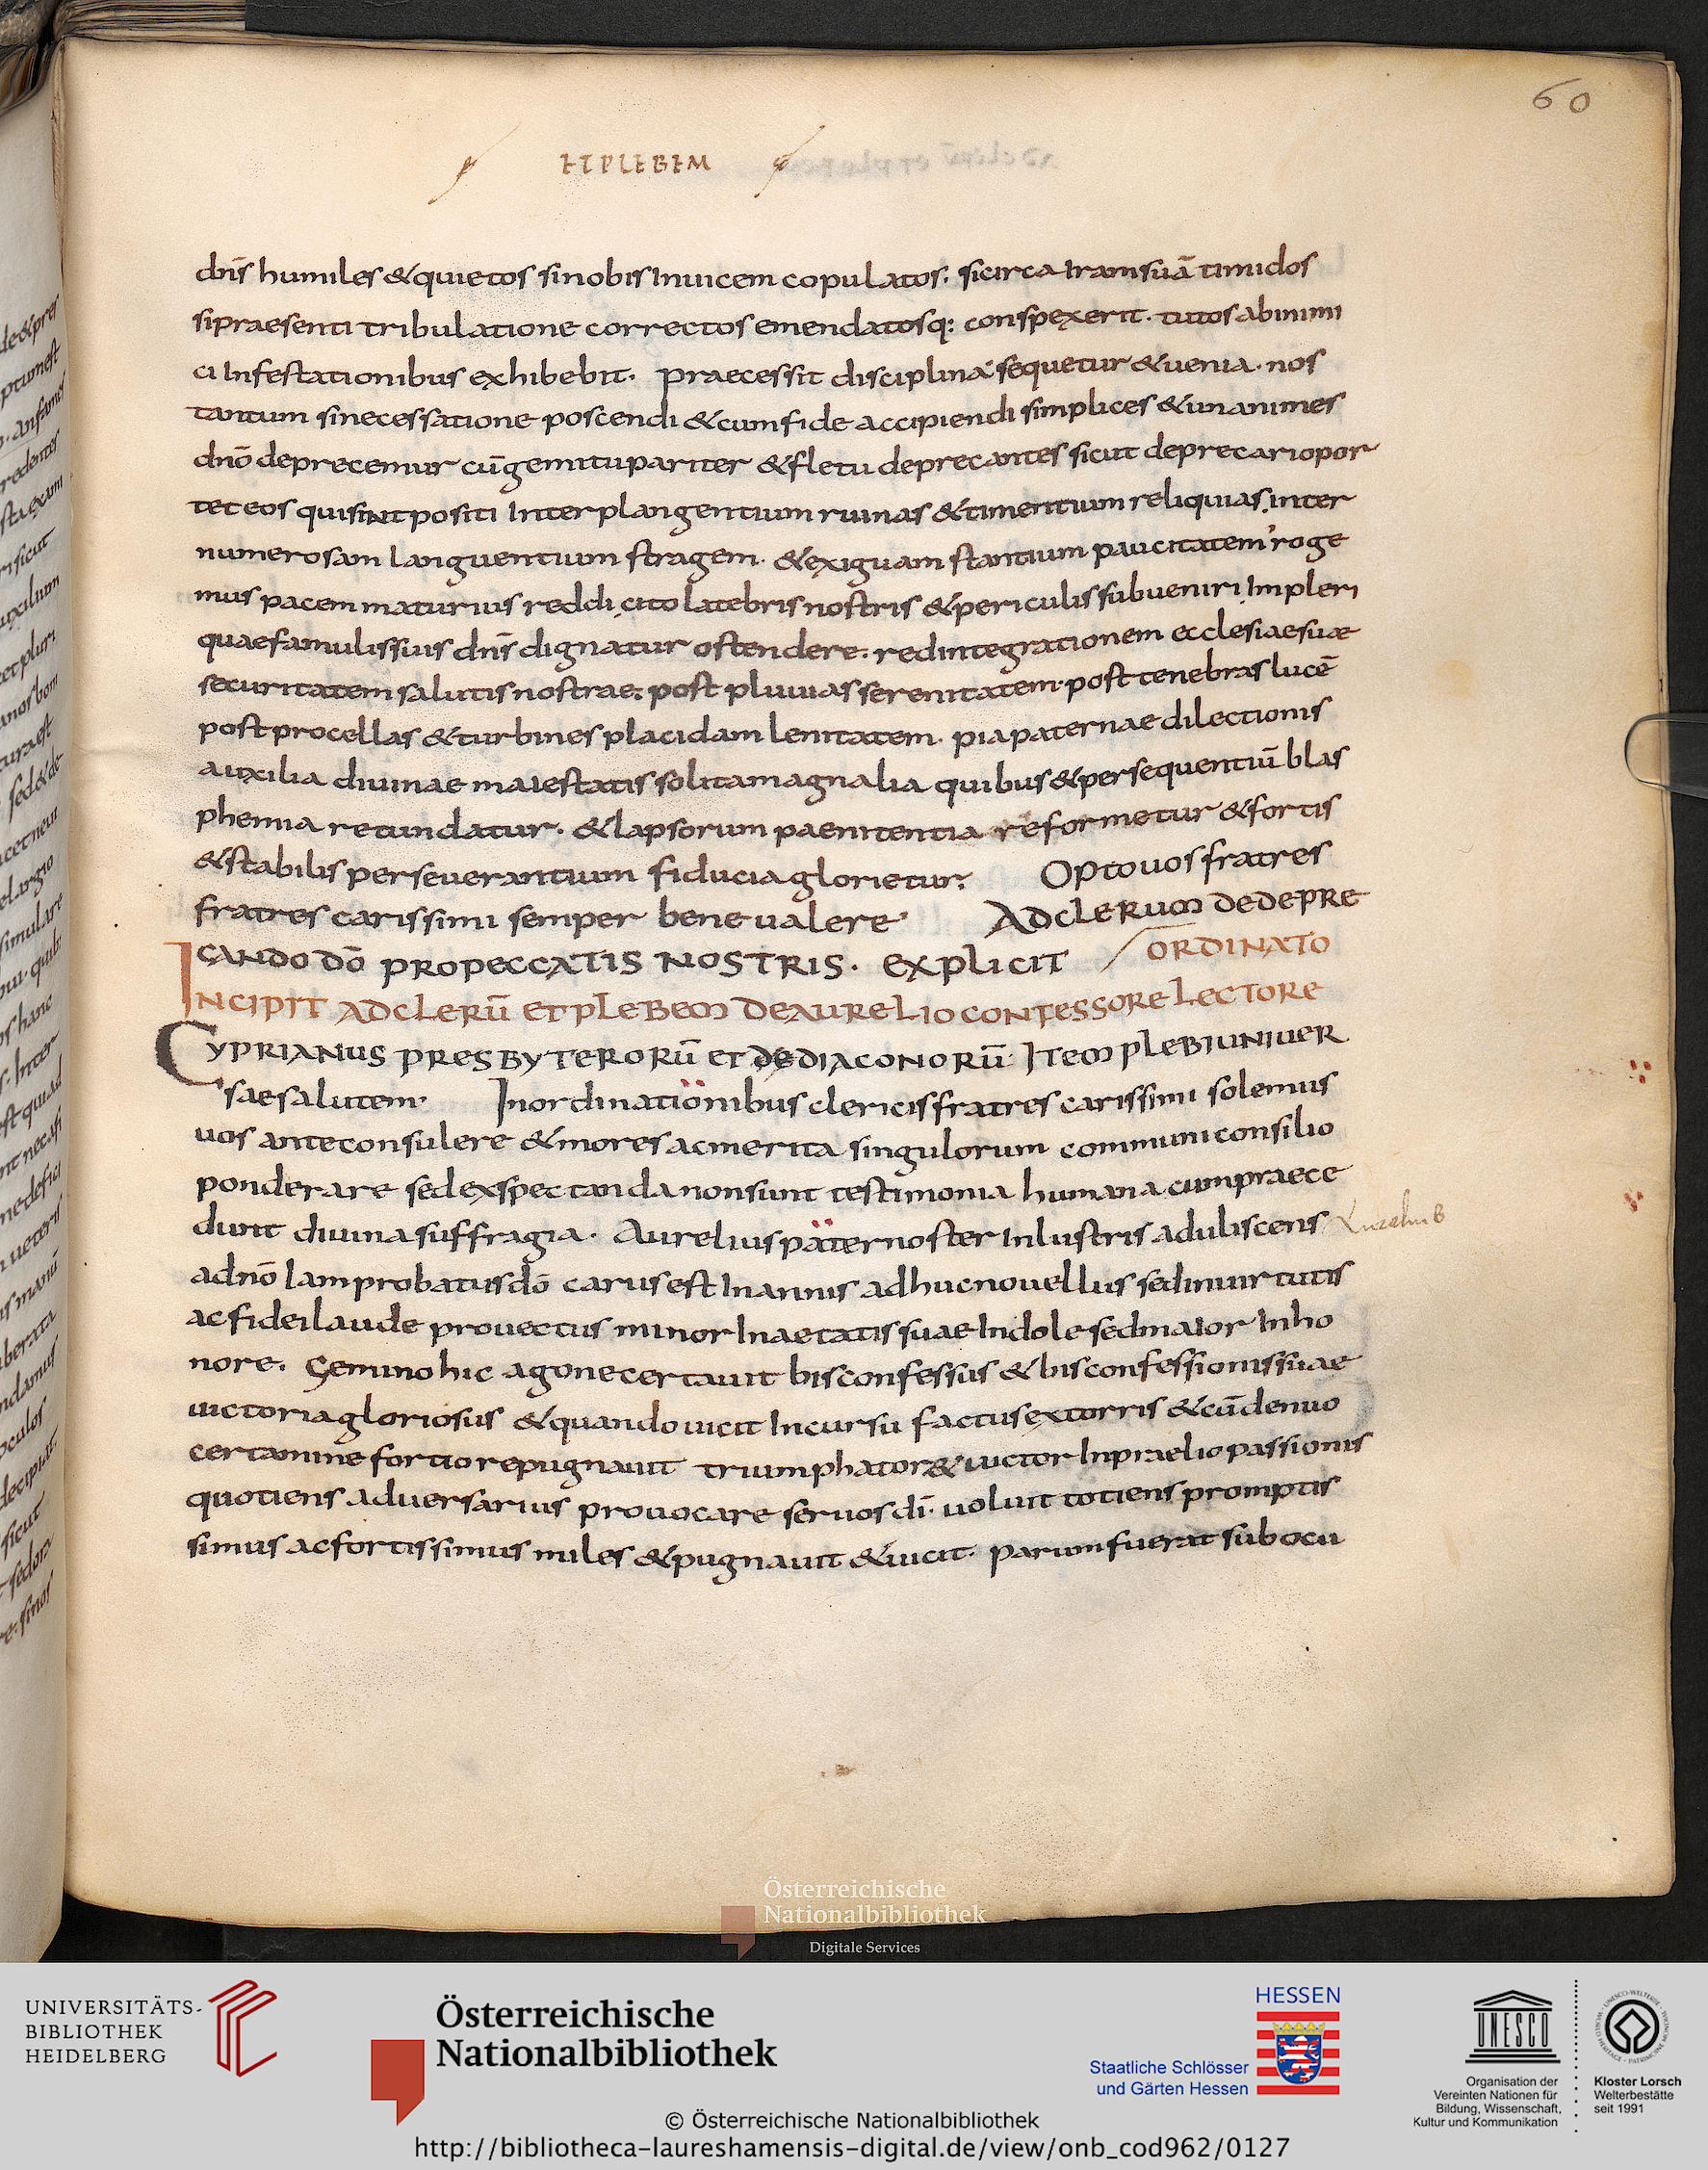 60
ET PLEBEM
dn̄s humiles & quietos si nobis Inuicem copulatos. si circa Iram suā timidos
si praesenti tribulatione correctos emendatosq: conspexerit. tutos ab inimi
ci Infestationibus exhibebit. Praecessit disciplina sequetur & uenia. nos
tantum sine cessatione poscendi & cum fide accipiendi simplices & unanimes
dn̄o deprecemur cū gemitu pariter & fletu deprecantes sicut deprecari opor
tet eos qui sint positi Inter plangentium ruinas & timentium reliquias. inter
numerosam languentium stragem. & exiguam stantium paucitatem roge
mus pacem maturius reddi cito latebris nostris & periculis subueniri Impleri
quae famulis suis dn̄s dignatur ostendere. redintegrationem ecclesiae suae
securitatem salutis nostrae; post pluuias serenitatem. post tenebras lucē
post procellas & turbines placidam lenitatem. pia paternae dilectionis
auxilia diuinae maiestatis solita magnalia quibus & persequentiū blas
phemia retundatur. & lapsorum paenitentia reformetur & fortis
& stabilis perseuerantium fiducia glorietur; Opto uos fratres
fratres carissimi semper bene ualere AD CLERUM DE DEPRE
CANDO DŌ PRO PECCATIS NOSTRIS. EXPLICIT ORDINATO
INCIPIT AD CLERŪ ET PLEBEM DE AURELIO CONFESSORE LECTORE
CYPRIANUS PRESBYTERORŪ ET DE DIACONORŪ ITEM PLEBI UNIUER
sae salutem. In ordinationibus clericis fratres carissimi solemus
uos ante consulere & mores ac merita singulorum communi consilio
ponderare sed exspectanda non sunt testimonia humana cum praece
dunt diuina suffragia. Aurelius pater noster Inlustris adulíscens
Aurelius
ad n̄o Iam probatus dō carus est In annis adhuc nouellus sed in uirtutis
ac fidei laude prouectus minor In aetatis suae Indole sed maior In ho
nore. Gemino hic agone certauit bis confessus & bis confessionis suae
uictoria gloriosus & quando uicit In cursu factus extorris & cū denuo
certamine fortio repugnauit triumphator & uictor In praelio passionis
quotiens aduersarius prouocare seruos dī. uoluit totiens promptis
simus ac fortissimus miles & pugnauit & uicit. parum fuerat sub ocu
Österreichische
Nationalbibliothek
Digitale Services
UNIVERSITÄTS-
BIBLIOTHEK
HEIDELBERG
Österreichische
Nationalbibliothek
HESSEN
Staatliche Schlösser
und Gärten Hessen
UNESCO
Organisation der
Vereinten Nationen für
Bildung, Wissenschaft,
Kultur und Kommunikation
Kloster Lorsch
Welterbestätte
seit 1991
© Österreichische Nationalbibliothek
http://bibliotheca-laureshamensis-digital.de/view/onb_cod962/0127